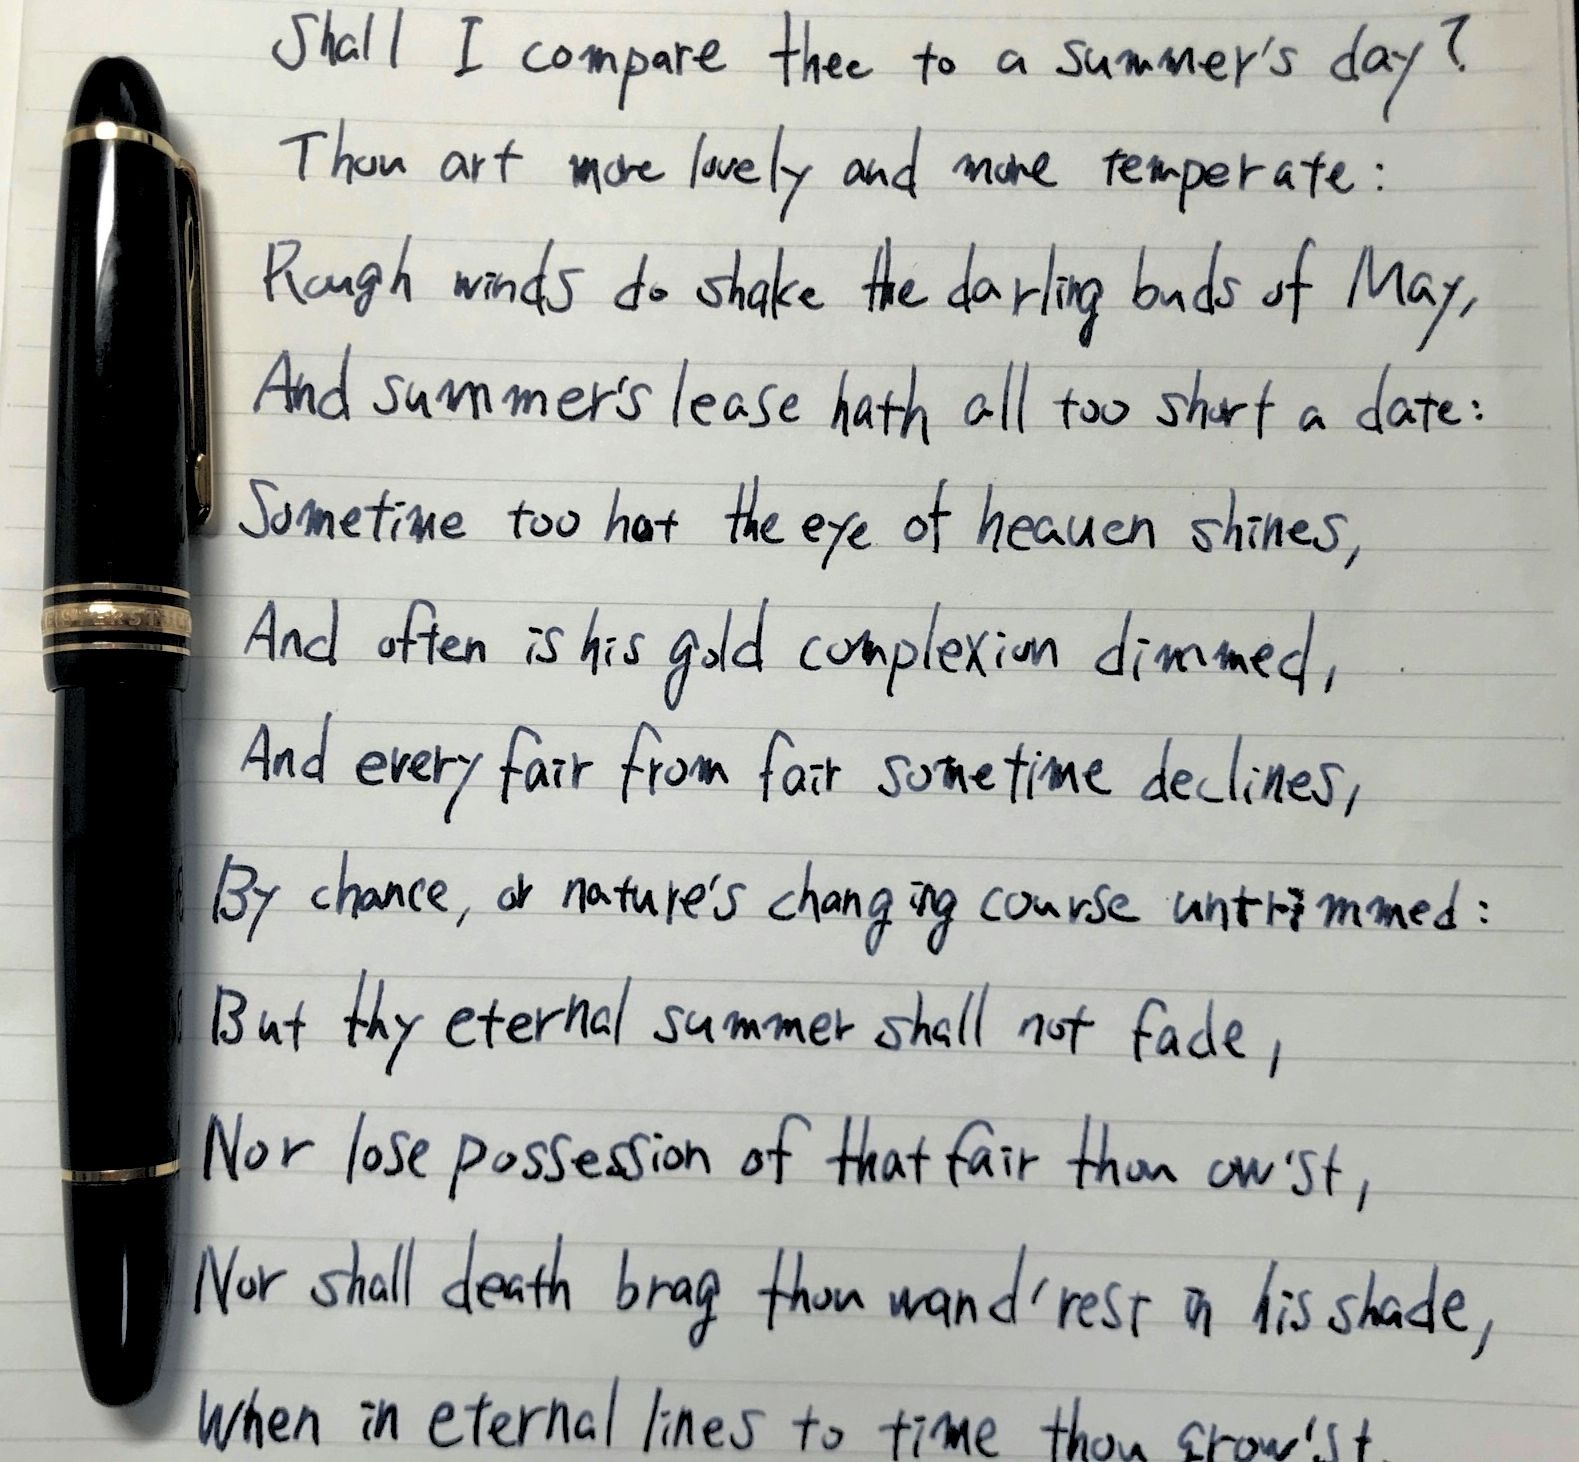 Shall I compare thee to a summer's day?
Thou art more lovely and more temperate:
Rough winds do shake the darling buds of May,
And summer's lease hath all too short a date:
Sometime too hot the eye of heaven shines,
And often is his gold complexion dimmed,
And every fair from fair sometime declines,
By chance, or nature's changing course untrimmed:
But thy eternal summer shall not fade,
Nor lose possession of that fair thou ow'st,
Nor shall death brag thou wand'rest in his shade,
When in eternal lines to time thou grow'st,